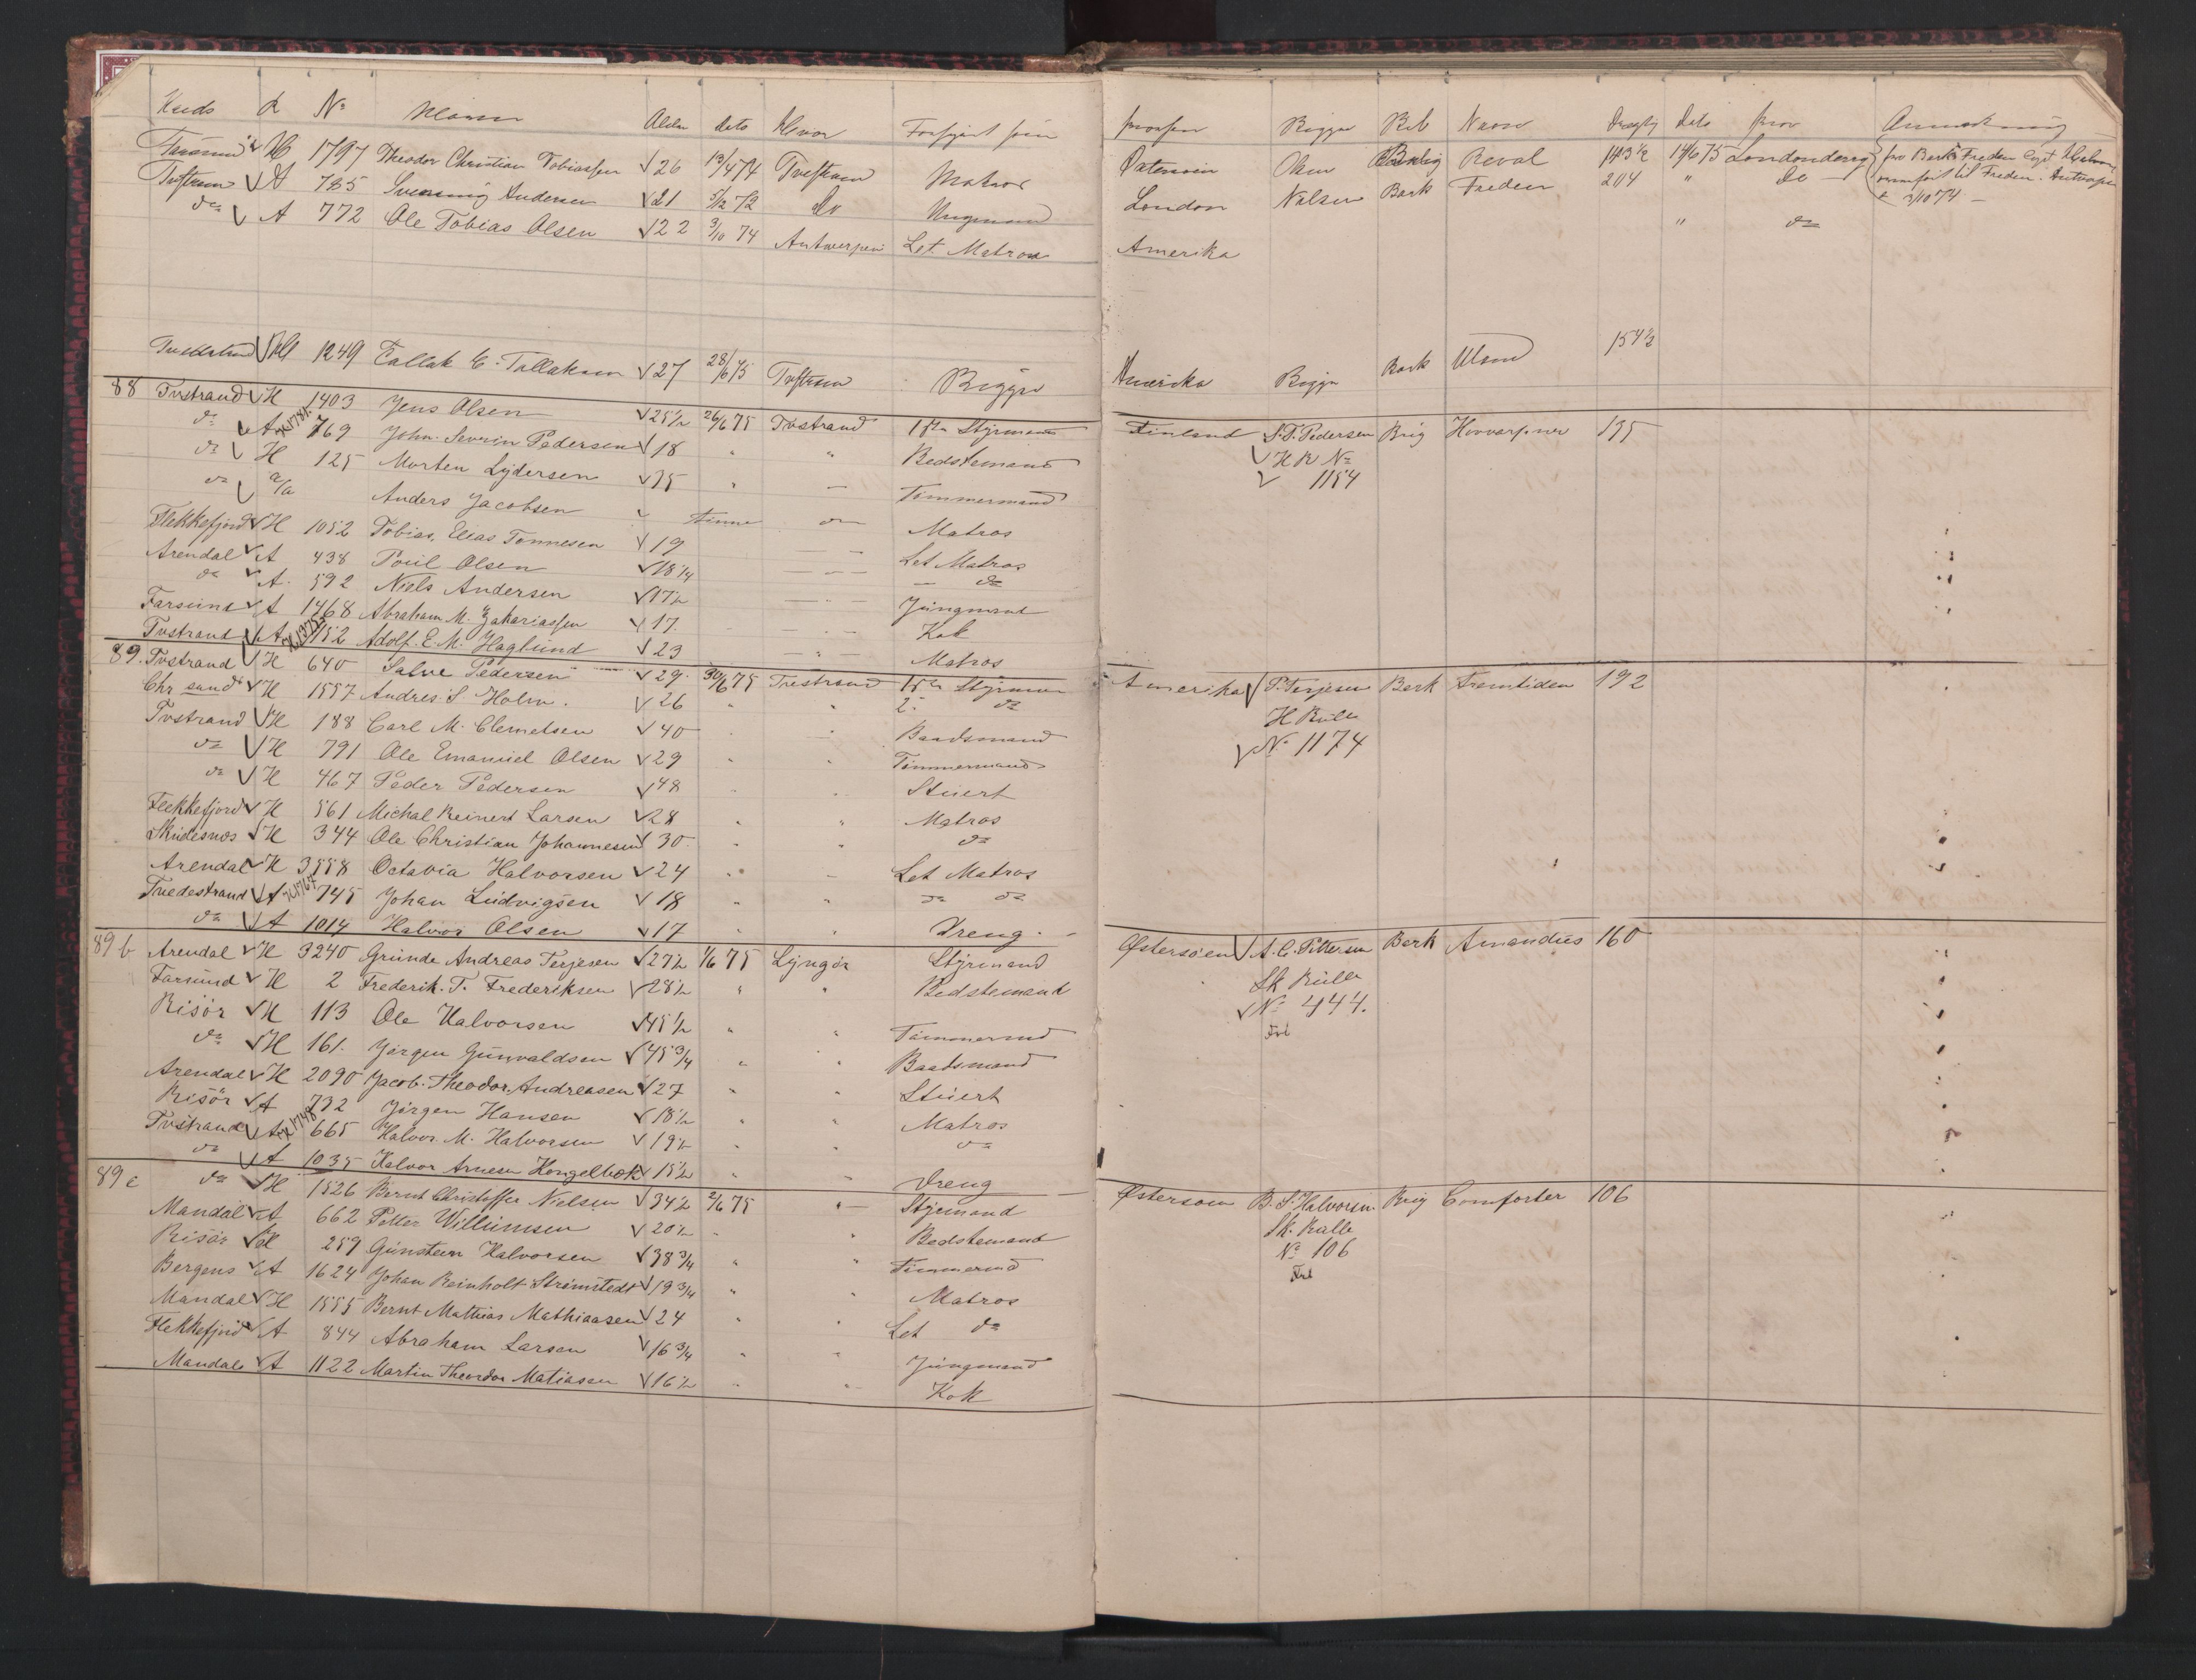 Kreds L No Navn Alder Dato Hvor Forhyret som hvorhen Rigger Rib Navn Drægtig Dato hvor Anmærkning
Farsund H 1797 Theodor Christian Tobiassen 26 13/4 74 Tvestrand Matros Østersøen Olsen Brig Reval 143 1/2 14/6 75 Londonderry fra Bark Freden
Tvestrand A 785 Svenning Andersen 21 5/12 72 do Ungmand London Nilsen Bark Freden 204 " do til Freden. Antwerpen
do A 772 Ole Tobias Olsen 22 3/10 74 Antwerpen Let Matros Amerika " do 3/10 74 –
Tvedestrand H 1249 Tallak E. Tallaksen 27 28/6 75 Tvestrand Bark 154 1/2
88 Tvstrand H 1403 Jens Olsen 25 1/2 26/6 75 Tvstrand 1ste Styrmand Finland S. T. Pedersen Brig 195
do A 769 John. Severin Pedersen 18 " " Bedstemand H R No
do H 125 Morten Lydersen 35 " — Tømmermand 1154
do a/a Anders Jacobsen do Matros
Flekkefjord H 1052 Tobias, Elias Tønnesen 19 — Let Matros
Arendal A 438 Poul Olsen 18 1/4 — do
do A. 592 Niels Andersen 17 1/2 Jungmand
Farsund A 1468 Abraham M. Zakariassen 17. Kok
Tvstrand A 1152 Adolf. E. M. Haglund 23 " Matros
89. Tvstrand H 640 Salve Pedersen 29. 30/6 75 Tvestrand 1ste Styrman Amerika P. Terjesen Bark Fremtiden 192
Chrsand H 1557 Andres S Holm. 26 " " 2. do H. Rulle
Tvstrand H 188 Carl M. Clemetsen 40 Baadsmand No 1174
do H 791 Ole Emanuel Olsen 29 " " Tømmermand
do H 467 Peder Pedersen 48 Stuert
Flekkefjord H 561 Michal Reinert Larsen 28 " " Matros
Skudesnes H 344 Ole Christian Johannesen 30. " " do
Arendal H 3558 Octavia Halvorsen 24 " — Let Matros
Tvedestrand A 745 Johan Ludvigsen 18 " " do do
do A 1014 Halvor Olsen 17 " Dreng.
89 b Arendal H 3240 Grunde Andreas Terjesen 27 1/2 1/6 75 Lyngør Styrmand Østersøen A. C. Pettersen Bark Amandus 160
Farsund H 2 Frederik. T. Frederiksen 28 1/2 " " Bedstemand Sk Rulle
Risør H 113 Ole Halvorsen 45 1/2 " " Tømmermd No 444.
do H 161. Jørgen Gunvaldsen 45 3/4 " " Baadsmand
Arendal H 2090 Jacob. Theodor. Andreasen 27 " " Stuert
Risør A 732 Jørgen Hansen 18 1/2 " " Matros
Tvstrand A 665 Halvor. M. Halvorsen 19 1/2 " do
do A 1035 Halvor Arnesen 15 1/2 " — Dreng
89 c do H 1526 Bernt Christoffer Nielsen 34 1/2 2/6 75 " Styrmand Østersøen B. S. Halvorsen Brig Comforter 106
Mandal A 662 Petter Willumsen 20 1/2 " " Bedstemand Sk. Rulle
Risør H 259 Gunsteen Halvorsen 38 3/4 " " Tømmermd No 106
Bergens A 1624 Johan Reinholt Strømstedt 19 3/4 " " Matros
Mandal H 1555 Bernt Mathias Mathiaasen 24 " " Let do
Flekkefjord A 844 Abraham Larsen 16 3/4 " " Jungmand
Mandals A 1122 Martin Theodor Matiassen 16 1/2 " " Kok